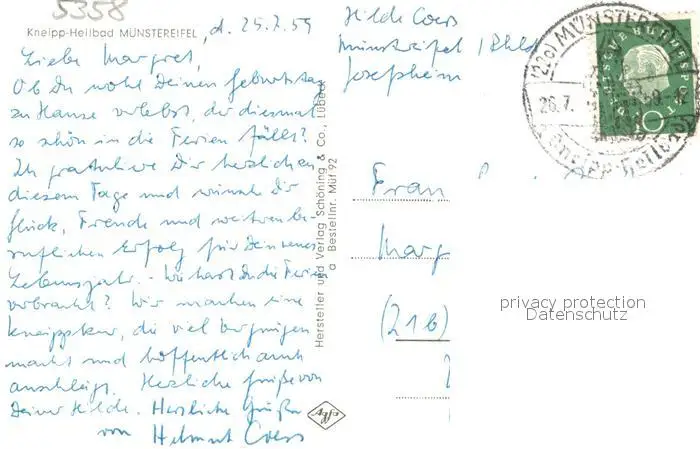 5358
Kneipp-Heilbad MÜNSTEREIFEL, d. 25.7.59
Liebe Margret,
Ob Du wohl Deinen Geburtstag
zu Hause verlebst, der diesmal
so schön in die Ferien fällt?
Ich gratuliere Dir herzlichen
diesem Tage und wünsche Dir
Glück, Freude und weiteren be-
ruflichen Erfolg für Dein neues
Lebensjahr. - Wie hast Du die Ferien
verbracht? Wir machen eine
Kneippkur, die viel Vergnügen
macht und hoffentlich auch
anschlägt. Herzliche Grüße von
Deiner Hilde. Herzliche Grüße
von Helmut Coers
Hersteller und Verlag Schöning & Co., Lübeck
a Bestellnr. Müf 92
Agfa
Hilde Coers
Münstereifel / Rhld
Josefheim
(22c) MÜNSTEREIFEL
26.7.59
Kneipp-Heilbad
DEUTSCHE BUNDESPOST
10
Frau
Marg
(21b)
privacy protection
Datenschutz